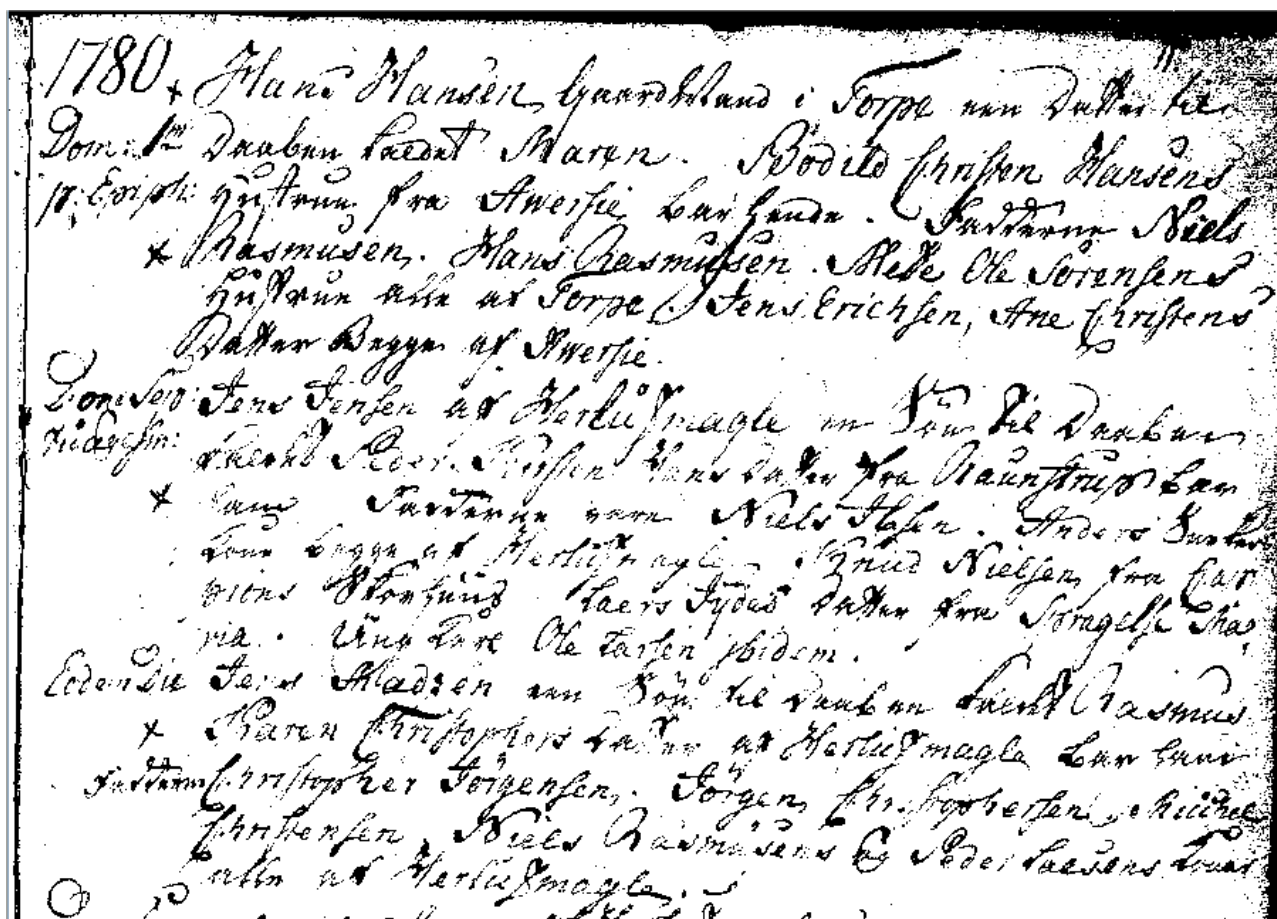 1780 Hans Hansen Gaardmand i Torpe een Datter til
Dom: 1me Daaben kaldet Maren. Bodild Christen Hansens
p: Epiph: Hustrue fra Awersie bar hende. Fadderne Niels
Rasmusen. Hans Rasmussen. Mette Ole Sørensens
Hustrue alle af Torpe Jens Erichsen, Ane Christens
Datter Begge af Awersie.
Jens Jensen af Herlufmagle en Søn til Daaben
kaldet Peder. Hans Datter fra Raunstrup bar
ham Fadderne vare Niels Ibsen. Anders
kone begge af Herlufmagle Knud Nielsen fra
Laers Jydes Datter fra
Ung Karl Ole Larsen ibidem.
Eodem Die Jens Madsen een Søn til Daaben kaldet Rasmus
Karen Christophers Datter af Herlufmagle bar ham
Fadderne Christopher Jørgensen. Jørgen Christophersen. Michel
Christensen, Niels Rasmusens og Peder Laesens Koner
alle af Herlufmagle.